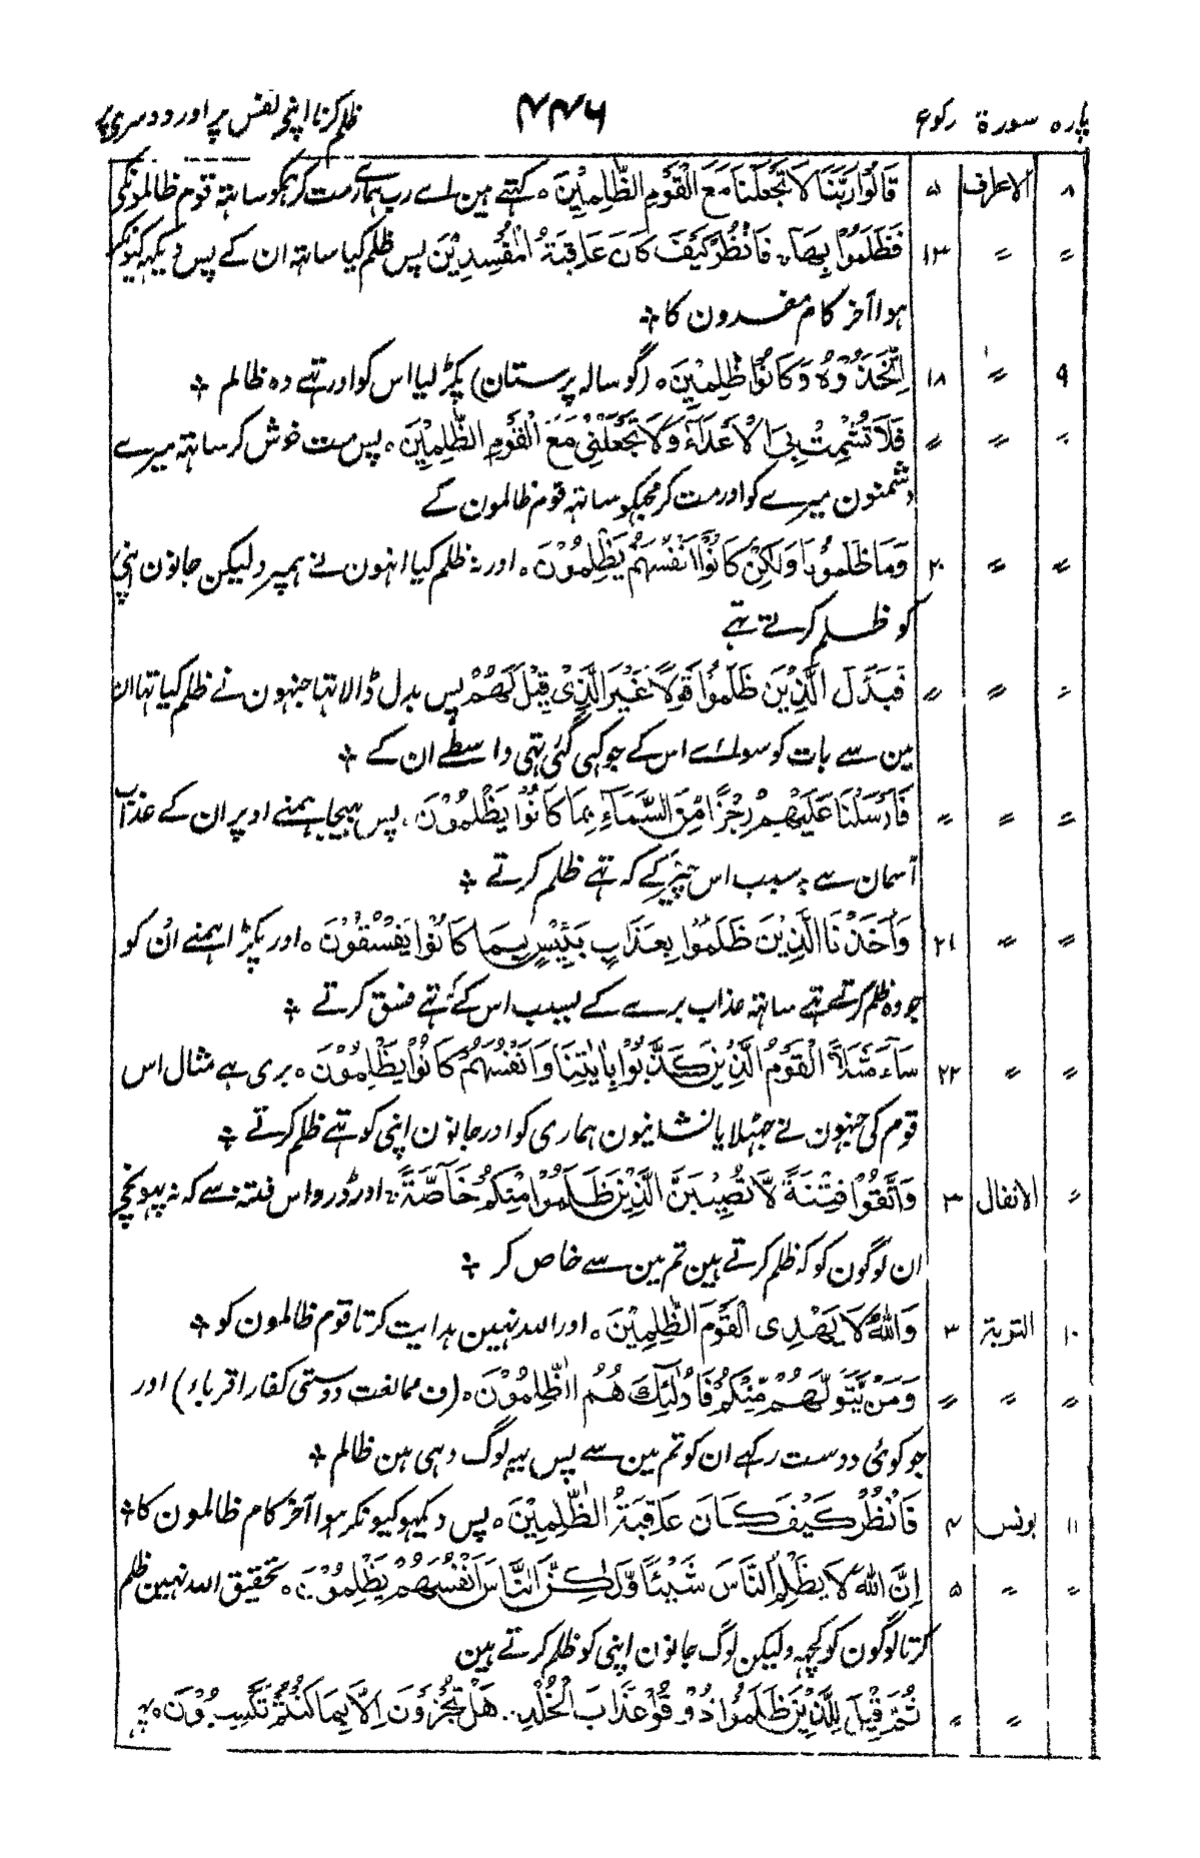 پارہ سورۃ رکوع ۷۷۶ ظلم کرنا اپنے نفس پر اور دوسری پر
۸ الاعراف ۵ قَالُوْا رَبَّنَا لَا تَجْعَلْنَا مَعَ الْقَوْمِ الظّٰلِمِيْنَ ٥ کہتے ہین اے رب ہمارے مت کر ہمکو ساتہہ قوم ظالمونکی
〃 〃 ۱۳ فَظَلَمُوْا بِهَا، فَانْظُرْ كَيْفَ كَانَ عَاقِبَةُ الْمُفْسِدِيْنَ پس ظلم کیا ساتہہ ان کے پس دیکہہ کیونکر
ہوا آخر کام مفسدون کا ÷
۹ 〃 ۱۸ اِتَّخَذُوْهُ وَكَانُوْا ظٰلِمِيْنَ ٥ (گوسالہ پرستان) پکڑ لیا اس کو اور تہے وہ ظالم ÷
〃 〃 〃 فَلَا تُشْمِتْ بِيَ الْاَعْدَآءَ وَلَا تَجْعَلْنِيْ مَعَ الْقَوْمِ الظّٰلِمِيْنَ ٥ پس مت خوش کر ساتہہ میرے
دشمنون میرے کو اور مت کر مجہکو ساتہہ قوم ظالمون کے
〃 〃 ۲۰ وَمَا ظَلَمُوْنَا وَلٰكِنْ كَانُوْا اَنْفُسَهُمْ يَظْلِمُوْنَ ٥ اور نہ ظلم کیا انہون نے ہمپر ولیکن جانون اپنی
کو ظلم کرتے تہے
〃 〃 〃 فَبَدَّلَ الَّذِيْنَ ظَلَمُوْا قَوْلًا غَيْرَ الَّذِيْ قِيْلَ لَهُمْ پس بدل ڈالا تہا جنہون نے ظلم کیا تہا ان
مین سے بات کو سواے اس کے جو کہی گئی تہی واسطے ان کے ÷
〃 〃 〃 فَاَرْسَلْنَا عَلَيْهِمْ رِجْزًا مِّنَ السَّمَآءِ بِمَا كَانُوْا يَظْلِمُوْنَ، پس بہیجا ہمنے اوپر ان کے عذاب
آسمان سے بہ سبب اس چیز کے کہ تہے ظلم کرتے ÷
〃 〃 ۲۱ وَاَخَذْنَا الَّذِيْنَ ظَلَمُوْا بِعَذَابٍ بَئِيْسٍ بِمَا كَانُوْا يَفْسُقُوْنَ ٥ اور پکڑا ہمنے اُن کو
جو وہ ظلم کرتے تہے ساتہہ عذاب برے کے بسبب اس کے تہے فسق کرتے ÷
〃 〃 ۲۲ سَآءَ مَثَلًا الْقَوْمُ الَّذِيْنَ كَذَّبُوْا بِاٰيٰتِنَا وَاَنْفُسَهُمْ كَانُوْا يَظْلِمُوْنَ ٥ بری ہے مثال اس
قوم کی جنہون نے جہٹلایا نشانیون ہماری کو اور جانون اپنی کو تہے ظلم کرتے ÷
〃 الانفال ۳ وَاتَّقُوْا فِتْنَةً لَّا تُصِيْبَنَّ الَّذِيْنَ ظَلَمُوْا مِنْكُمْ خَآصَّةً، اور ڈرو اس فتنہ سے کہ نہ پہونچے
ان لوگون کو کہ ظلم کرتے ہین تم مین سے خاص کر ÷
۱۰ التوبۃ ۳ وَاللّٰهُ لَا يَهْدِى الْقَوْمَ الظّٰلِمِيْنَ ٥ اور اللہ نہین ہدایت کرتا قوم ظالمون کو ÷
〃 〃 〃 وَمَنْ يَّتَوَلَّهُمْ مِّنْكُمْ فَاُولٰٓئِكَ هُمُ الظّٰلِمُوْنَ ٥ (ف ممالغت دوستی کفار اقرباء) اور
جو کوئی دوست رکہے ان کو تم مین سے پس یہہ لوگ وہی ہن ظالم ÷
۱۱ یونس ۴ فَانْظُرْ كَيْفَ كَانَ عَاقِبَةُ الظّٰلِمِيْنَ ٥ پس دیکہو کیونکر ہوا آخر کام ظالمون کا ÷
〃 〃 ۵ اِنَّ اللّٰهَ لَا يَظْلِمُ النَّاسَ شَيْئًا وَّلٰكِنَّ النَّاسَ اَنْفُسَهُمْ يَظْلِمُوْنَ ٥ تحقیق اللہ نہین ظلم
کرتا لوگون کو کچہہ ولیکن لوگ جانون اپنی کو ظلم کرتے ہین
〃 〃 ثُمَّ قِيْلَ لِلَّذِيْنَ ظَلَمُوْا ذُوْقُوْا عَذَابَ الْخُلْدِ، هَلْ تُجْزَوْنَ اِلَّا بِمَا كُنْتُمْ تَكْسِبُوْنَ ٥